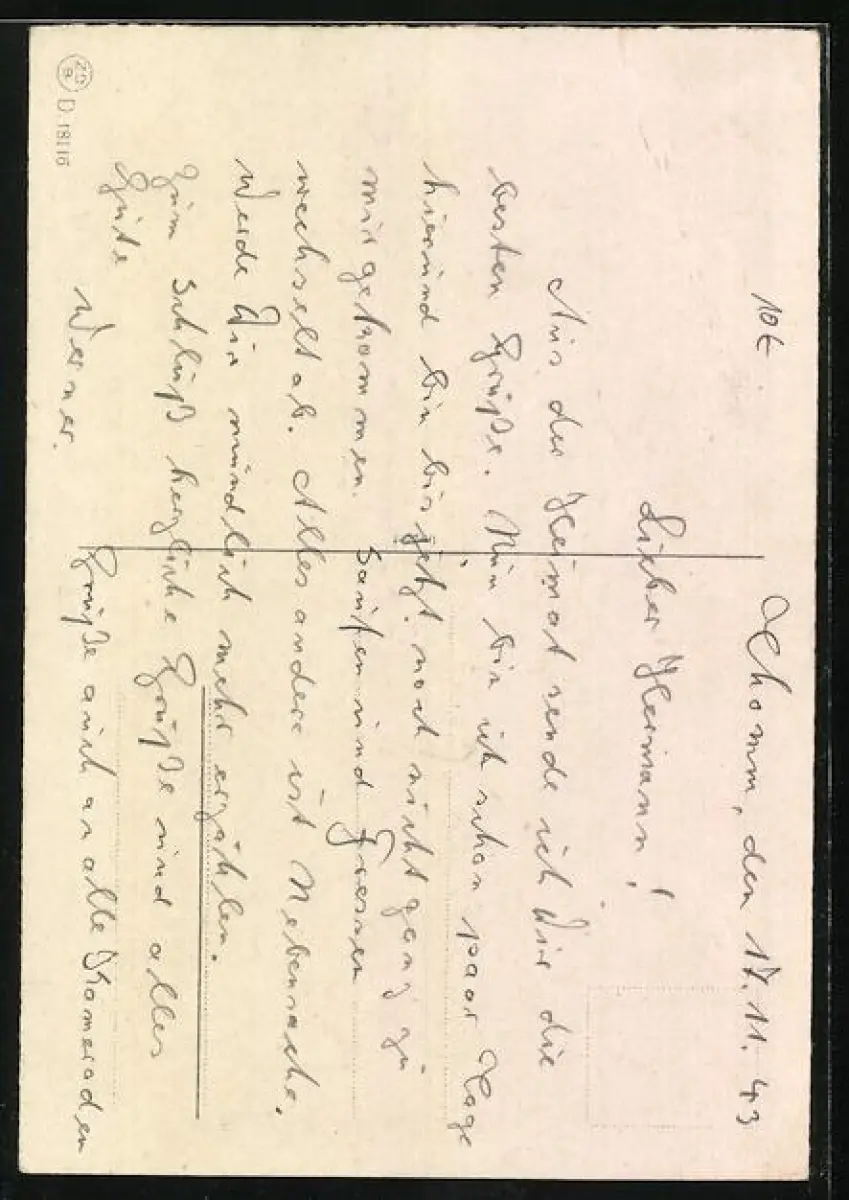 10€
den 17.11.43
Lieber Hermann!
Aus der Heimat sende ich Dir die
besten Grüße. Nun bin ich schon paar Tage
hier und bin bis jetzt noch nicht ganz zu
mir gekommen. Saufen und Fressen
wechselt ab. Alles andere ist Nebensache.
Werde Dir mündlich mehr erzählen.
Zum Schluß herzliche Grüße und alles
Gute
Werner.
Grüße auch an alle Kameraden
D. 18116